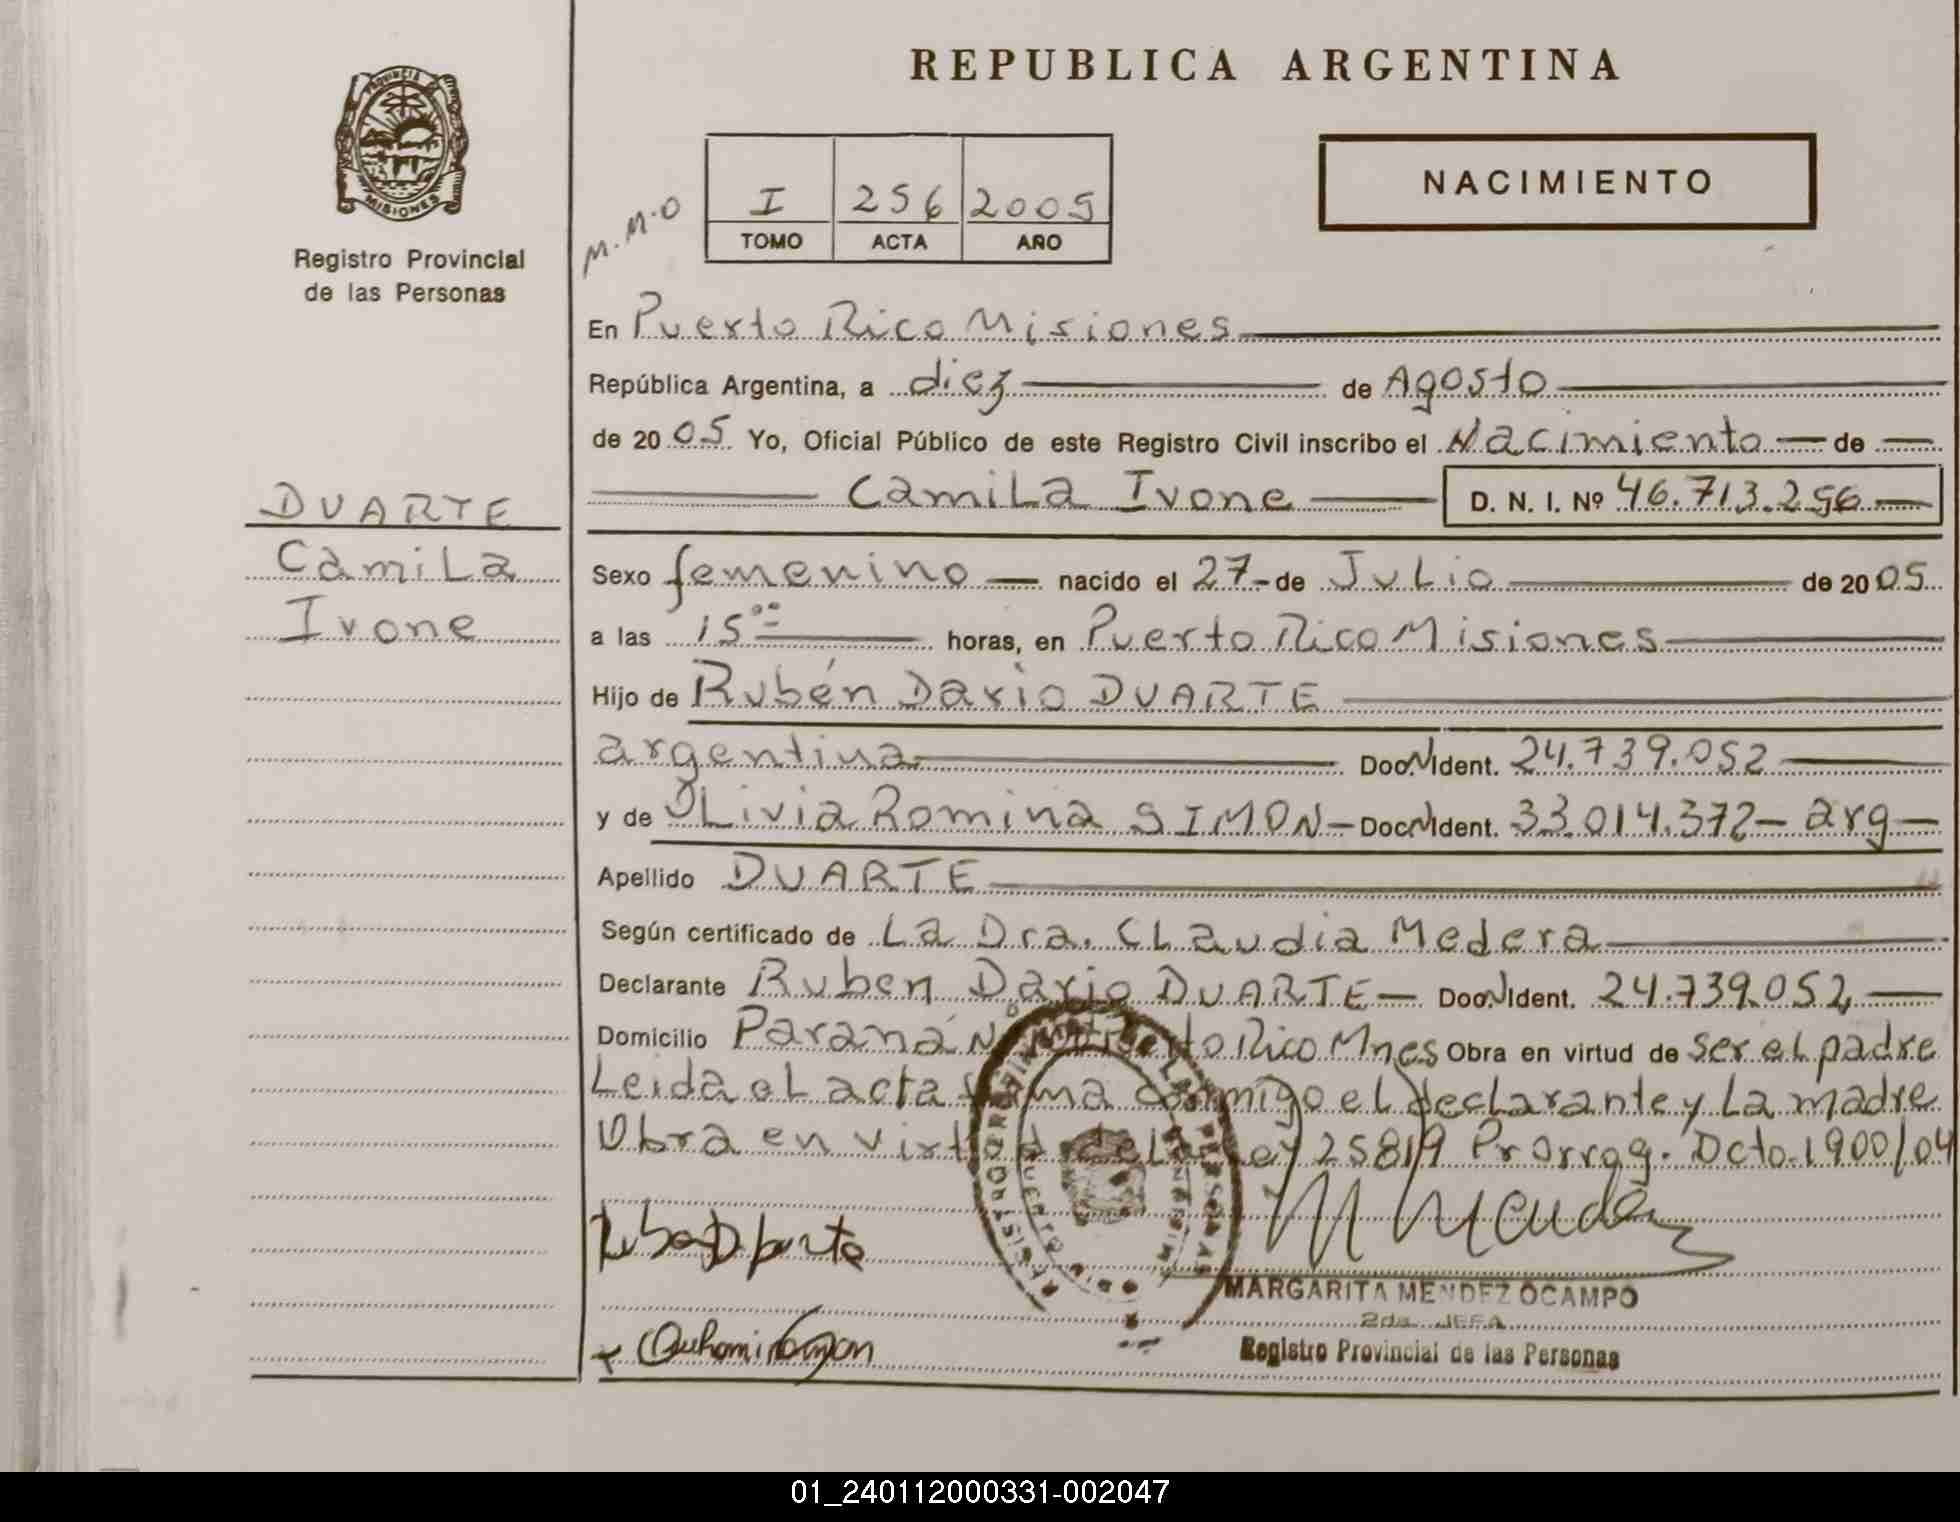 REPUBLICA ARGENTINA
PROVINCIA
MISIONES
Registro Provincial
de las Personas
NACIMIENTO
M.M.O
I 256 2005
TOMO ACTA AÑO
En Puerto Rico Misiones
República Argentina, a diez de Agosto
de 2005 Yo, Oficial Público de este Registro Civil inscribo el Nacimiento de
Camila Ivone D. N. I. Nº 46.713.256
DUARTE
Camila
Ivone
Sexo femenino nacido el 27 de Julio de 2005
a las 15 00 horas, en Puerto Rico Misiones
Hijo de Rubén Dario DUARTE
argentina Doc. N Ident. 24.739.052
y de Olivia Romina SIMON Doc. N Ident. 33.014.372 arg
Apellido DUARTE
Según certificado de La Dra. Claudia Medera
Declarante Ruben Dario DUARTE Doc. N Ident. 24.739.052
Domicilio Paraná Rico Mnes Obra en virtud de ser el padre
Leida el acta firma conmigo el declarante y La madre
Obra en virtud de la Ley 25819 Prorrog. Dcto. 1900/04
MARGARITA MENDEZ OCAMPO
2da. JEFA
Registro Provincial de las Personas
01_240112000331-002047